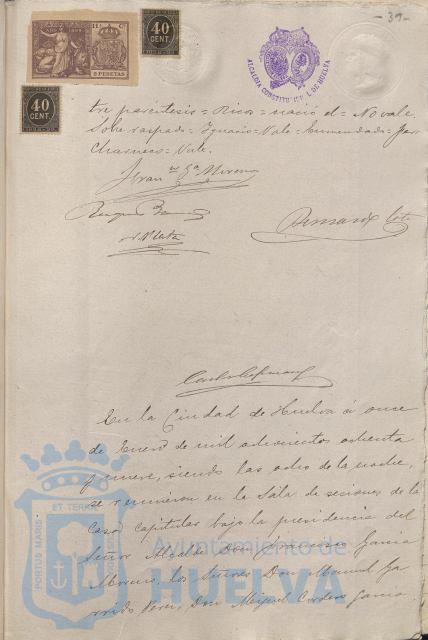 - 39 -
40
CENT.
2 PESETAS
40
CENT.
ALCALDIA CONSTITUCIONAL DE HUELVA
tre paréntesis = Rivas = nació el = No vale.
Sobre raspado = Ignacio = Vale = Enmendado =
Charneco = Vale.
Fran.co G.a Moreno
En la Ciudad de Huelva á once
de Enero de mil ochocientos ochenta
y nueve, siendo las ocho de la noche,
se reunieron en la Sala de sesiones de la
casa capitular bajo la presidencia del
Señor Alcalde Don Francisco Garcia
Moreno, los Señores Don Manuel Ga
rrido Perez, Don Miguel Cordero Garcia
PORTUS MARIS
ET TERRAE
Ayuntamiento de
HUELVA